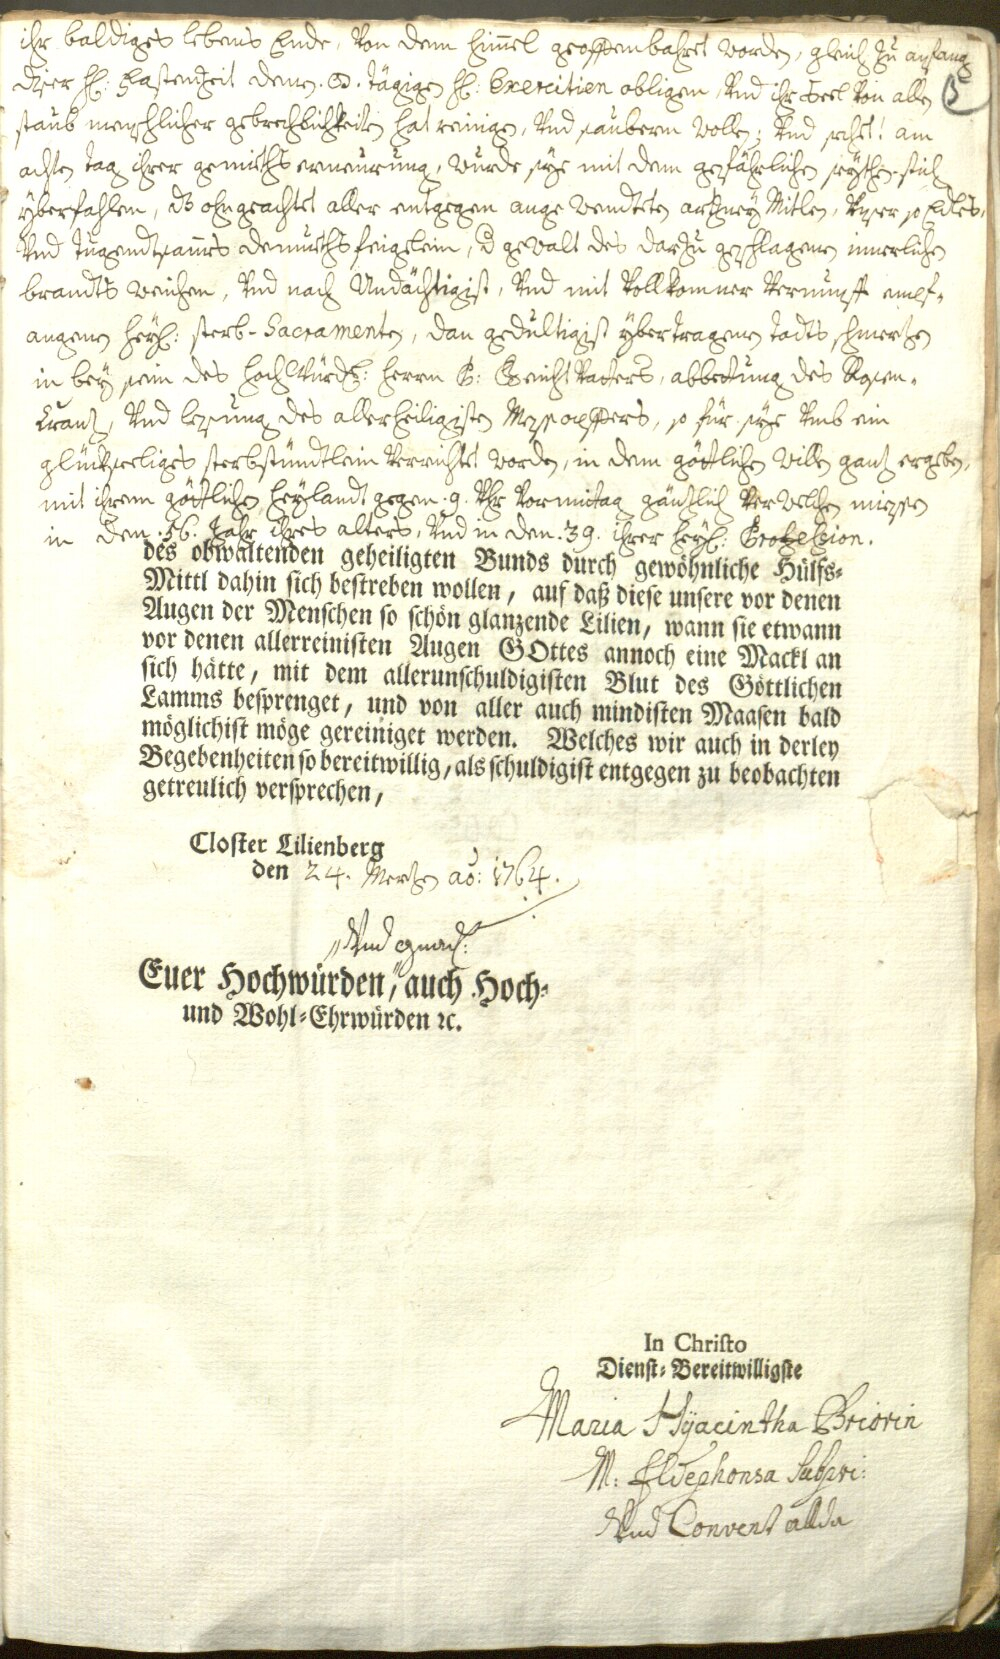 ihr baldiges lebens Ende, Von dem himel geoffenbahret worden, gleich zu anfang
diser hl: fastenzeit denen tägigen hl: Exercitien obligen, Vnd ihr Seel Von allen
5
staub menschlicher gebrechlichkeiten hat reinigen, Vnd saubern wollen; Vnd sehet! am
achten tag ihrer gemüeths erneürung, wurde sye mit dem gefährlichen seythen-stich
yberfahlen, ds ohngeachtet aller entgegen angewendteten artzney Mitlen,
Vnd tugendtsames demueths feigelein, d gewalt des darzu geschlagenen innerlichen
brandts weichen, Vnd nach Andächtigist, Vnd mit Vollkomner Vernunfft empf-
angenen heyl: sterb-Sacramenten, dan gedultigist ybertragenen todts schmertzen
in bey sein des hochwürd: herrn P: Beicht Vatters, abbettung des Rosen-
krantz, Vnd lesung des allerheiligisten Messopffers, so für sye Vmb ein
glückseeliges sterbstündtlein Verrichtet worden, in dem göttlichen willen gantz ergeben,
mit ihrem göttlichen heylandt gegen .9. Vhr Vormitag gäntzlich Verwelchen miessen
in dem .56. Jahr ihres alters, Vnd in den .39. ihrer heyl: Profession.
des obwaltenden geheiligten Bunds durch gewöhnliche Hülfs-
Mittl dahin sich bestreben wollen, auf daß diese unsere vor denen
Augen der Menschen so schön glanzende Lilien, wann sie etwann
vor denen allerreinisten Augen GOttes annoch eine Mackl an
sich hätte, mit dem allerunschuldigisten Blut des Göttlichen
Lamms besprenget, und von aller auch mindisten Maasen bald
möglichist möge gereiniget werden. Welches wir auch in derley
Begebenheiten so bereitwillig, als schuldigist entgegen zu beobachten
getreulich versprechen,
Closter Lilienberg
den 24. Mertzen ao: 1764.
Vnd gnad:
Euer Hochwürden, auch Hoch-
und Wohl-Ehrwürden ꝛc.
In Christo
Dienst-Bereitwilligste
Maria Hÿacintha Priorin
M: Ildephonsa Subpri:
Vnd Convent allda